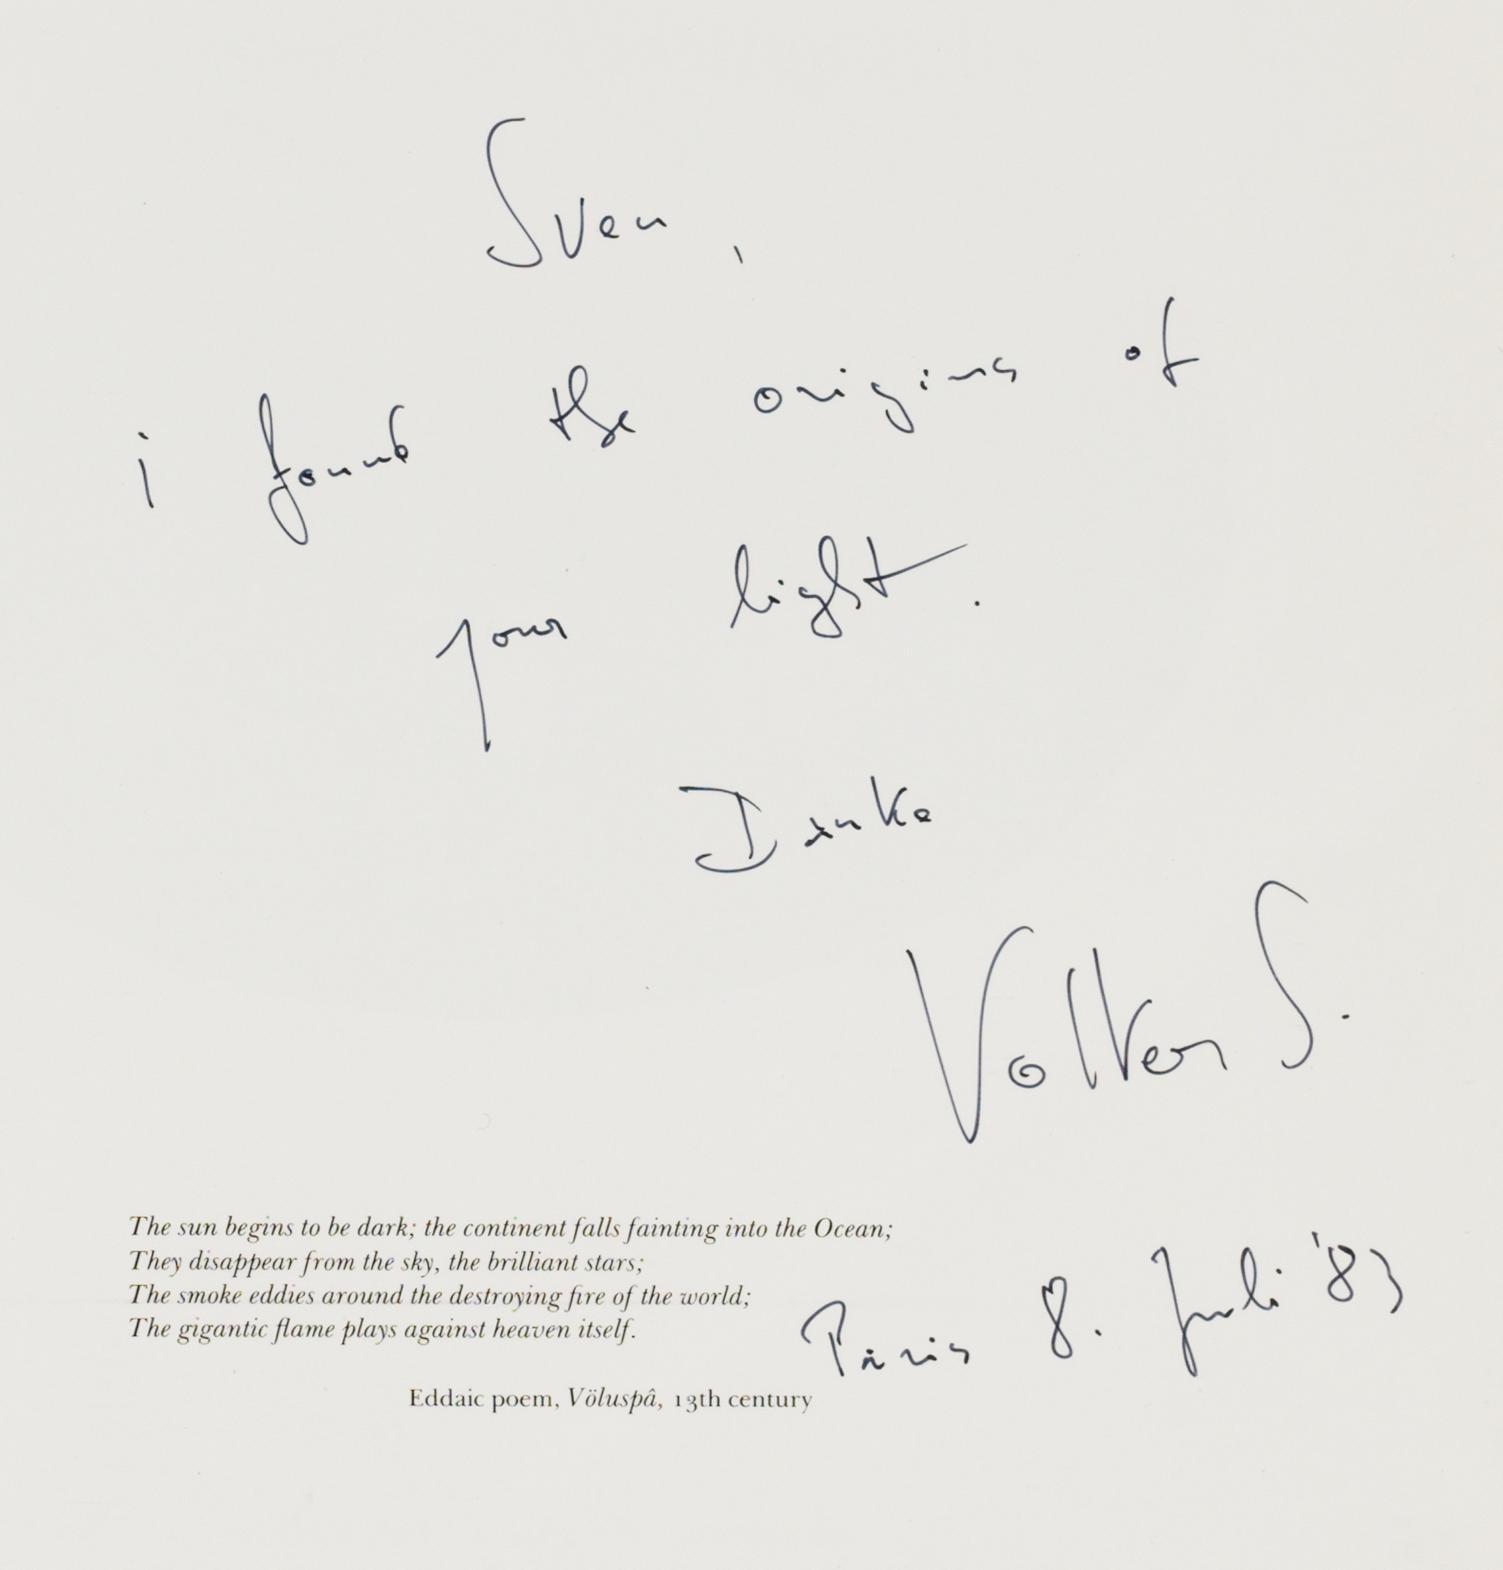 Sven,
i found the origins of
your light.
Danke
Volker S.
The sun begins to be dark; the continent falls fainting into the Ocean;
They disappear from the sky, the brilliant stars;
The smoke eddies around the destroying fire of the world;
The gigantic flame plays against heaven itself.
Eddaic poem, Völuspâ, 13th century
Paris 8. Juli '83